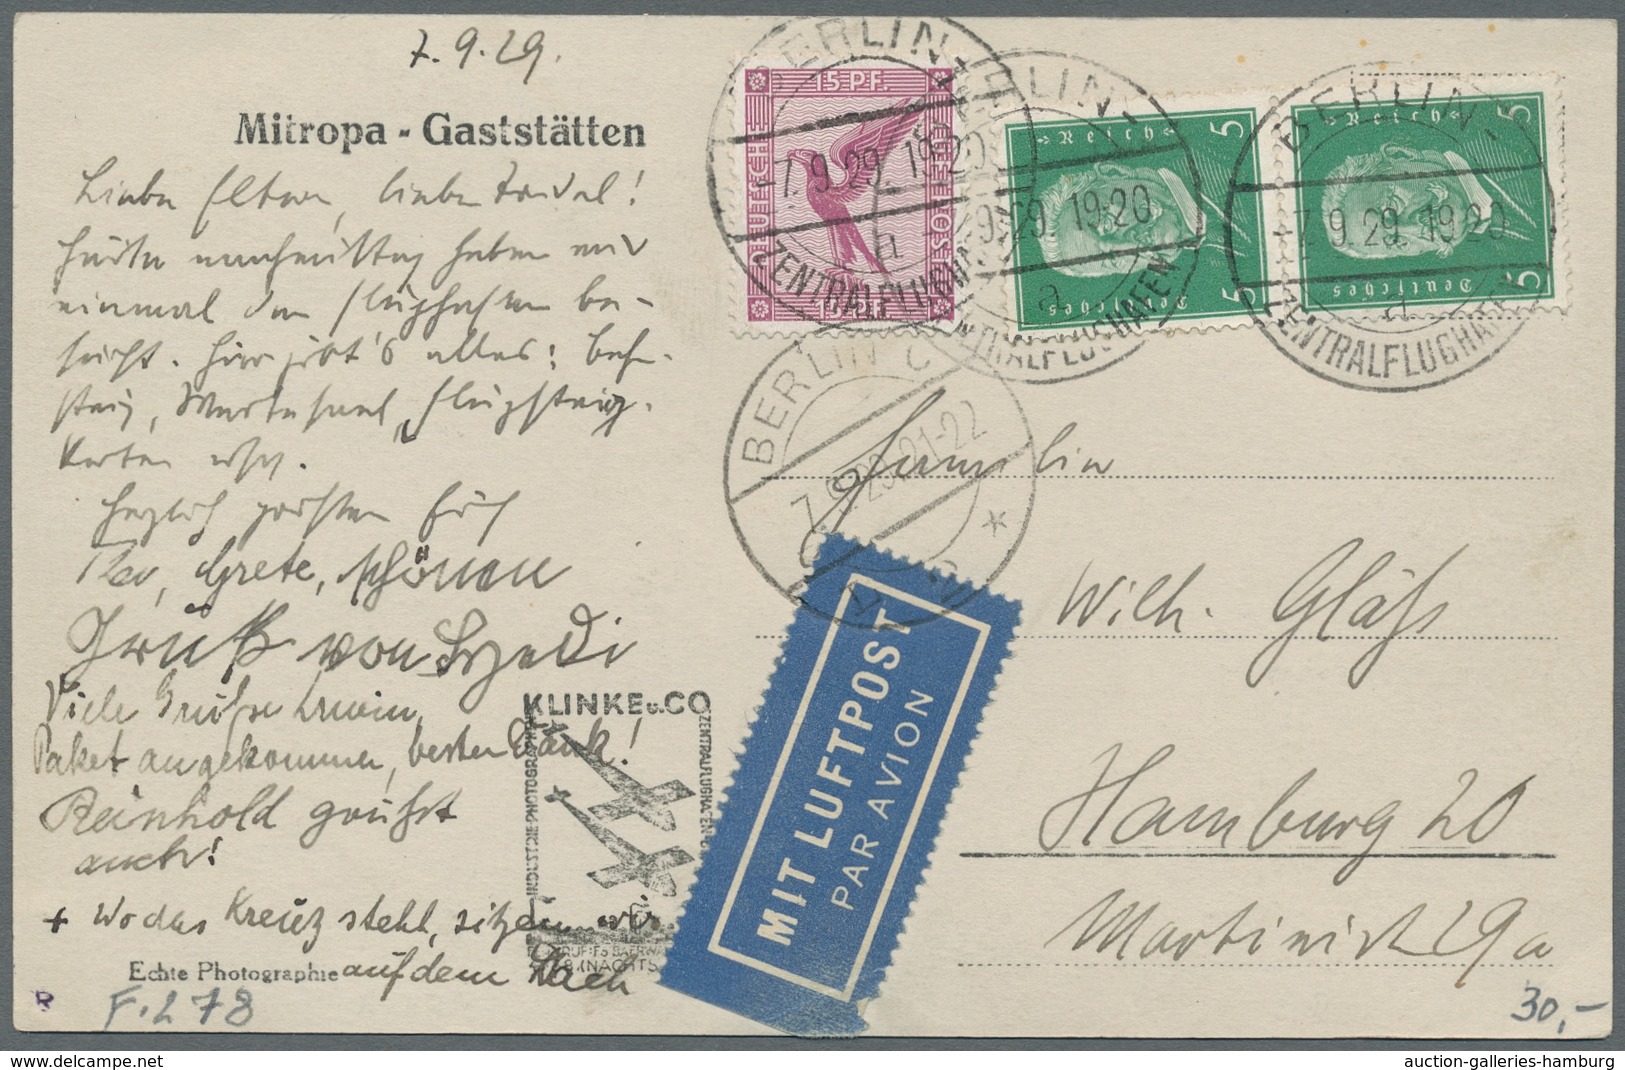 7.9.29.
Mitropa - Gaststätten
Liebe Eltern, liebe
Heute nachmittag haben wir
einmal den Flughafen be-
sucht. Hier gibt's alles: Bahn-
steig, Wartesaal, Flugsteig-
karten usw.
Herzlich grüßen Euch
Grete, schönen
Gruß von
Viele Grüße Erwin,
Paket angekommen, besten Dank!
Reinhold grüßt
auch!
+ Wo das Kreuz steht, sitzen wir
auf dem Dach
Echte Photographie
F. 278
R
KLINKE u. CO
INDUSTRIE-PHOTOGRAPHEN
ZENTRALFLUGHAFEN
(NACHTS
BERLIN-
7.9.29. 19-20
ZENTRALFLUGHAFEN
a
15 PF.
DEUTSCHE LUFTPOST
BERLIN-
7.9.29. 19-20
a
ZENTRALFLUGHAFEN
Deutsches Reich
5 5
BERLIN-
-7.9.29. 19-20
a
ZENTRALFLUGHAFEN
Deutsches Reich
5 5
BERLIN C
7.9.29.21-22
MIT LUFTPOST
PAR AVION
Familie
Wilh. Gläß
Hamburg 20
Martinistr 29a
30,-
auction-galleries-hamburg